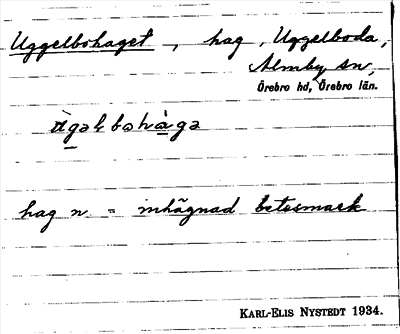 Uggelbohaget, hag, Uggelboda,
Almby sn,
Örebro hd, Örebro län.
hag n = inhägnad betesmark
KARL-ELIS NYSTEDT 1934.